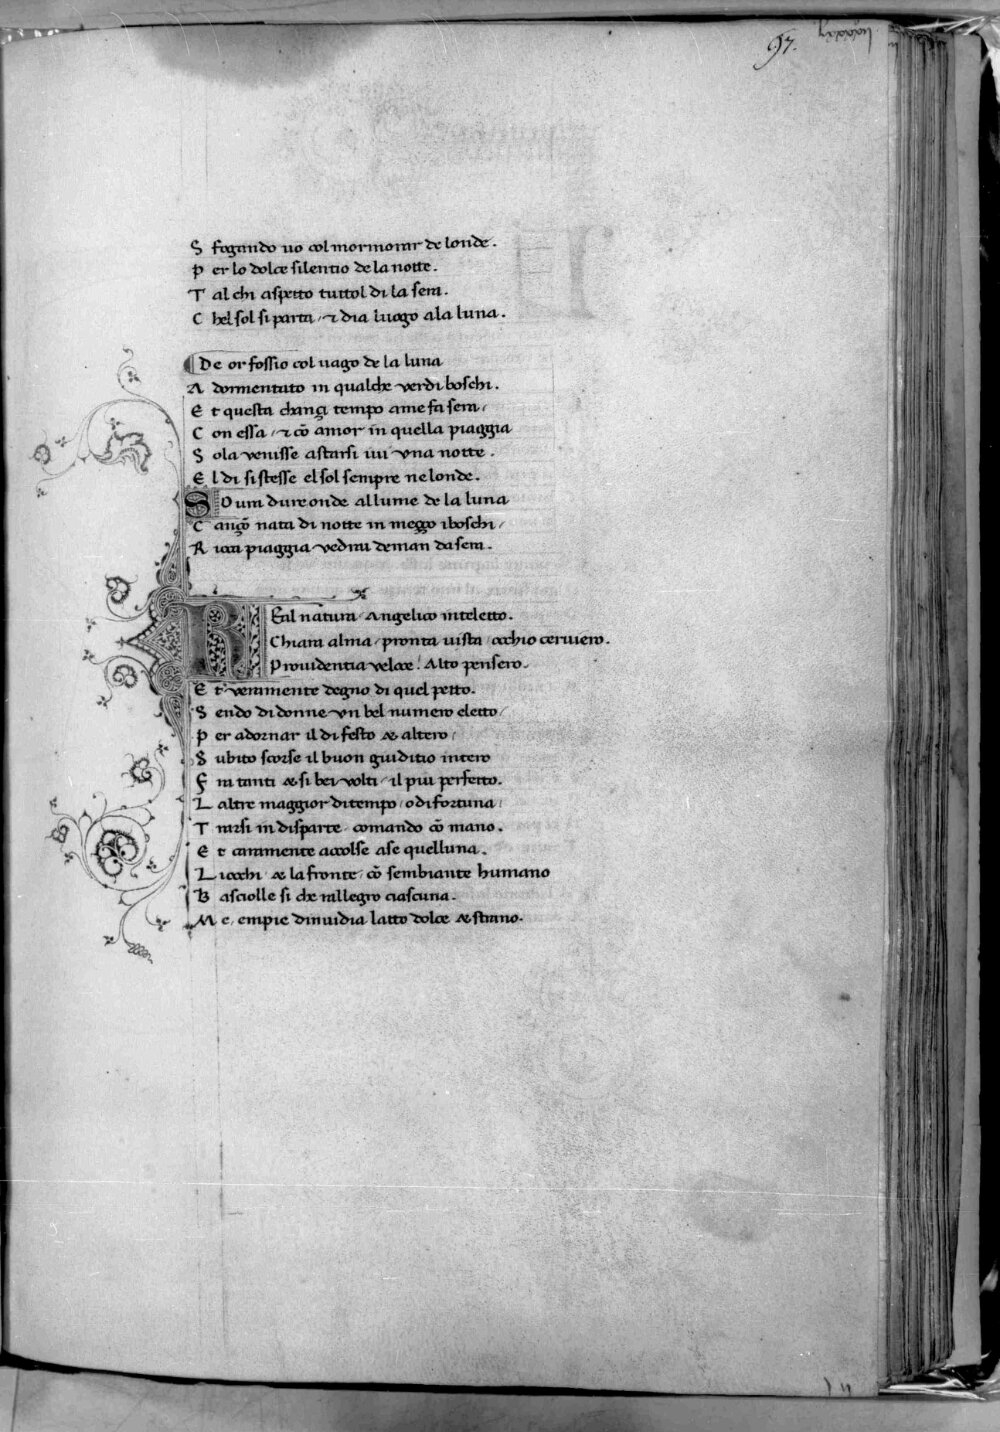 97.
S fogando uo col mormorar de londe.
P er lo dolce silentio de la notte.
T al chi aspetto tuttol di la sera.
C hel sol si parta / ⁊ dia luogo ala luna.
De or fossio col uago de la luna
A dormentato in qualche verdi boschi.
E t questa changi tempo ame fa sera /
C on essa / ⁊ cō amor in quella piaggia
S ola venisse astarsi iui vna notte.
E l di si stesse el sol sempre ne londe.
SO ura dure onde al lume de la luna
C anzō nata di notte in mezzo iboschi /
R icca piaggia vedrai deman da sera.
REal natura / Angelico inteletto.
Chiara alma / pronta uista / occhio ceruiero.
Prouidentia veloce / Alto pensero.
E t veramente degno di quel petto.
S endo di donne vn bel numero eletto /
P er adornar il di festo & altero /
S ubito scorse il buon giuditio intero
F ra tanti & si bei volti / il piu perfetto.
L altre maggior di tempo / o di fortuna /
T rarsi in disparte / comando cō mano.
E t caramente accolse ase quelluna.
L iocchi & la fronte / cō sembiante humano
B asciolle si che rallegro ciascuna.
M e / empie dinuidia latto dolce & strano.